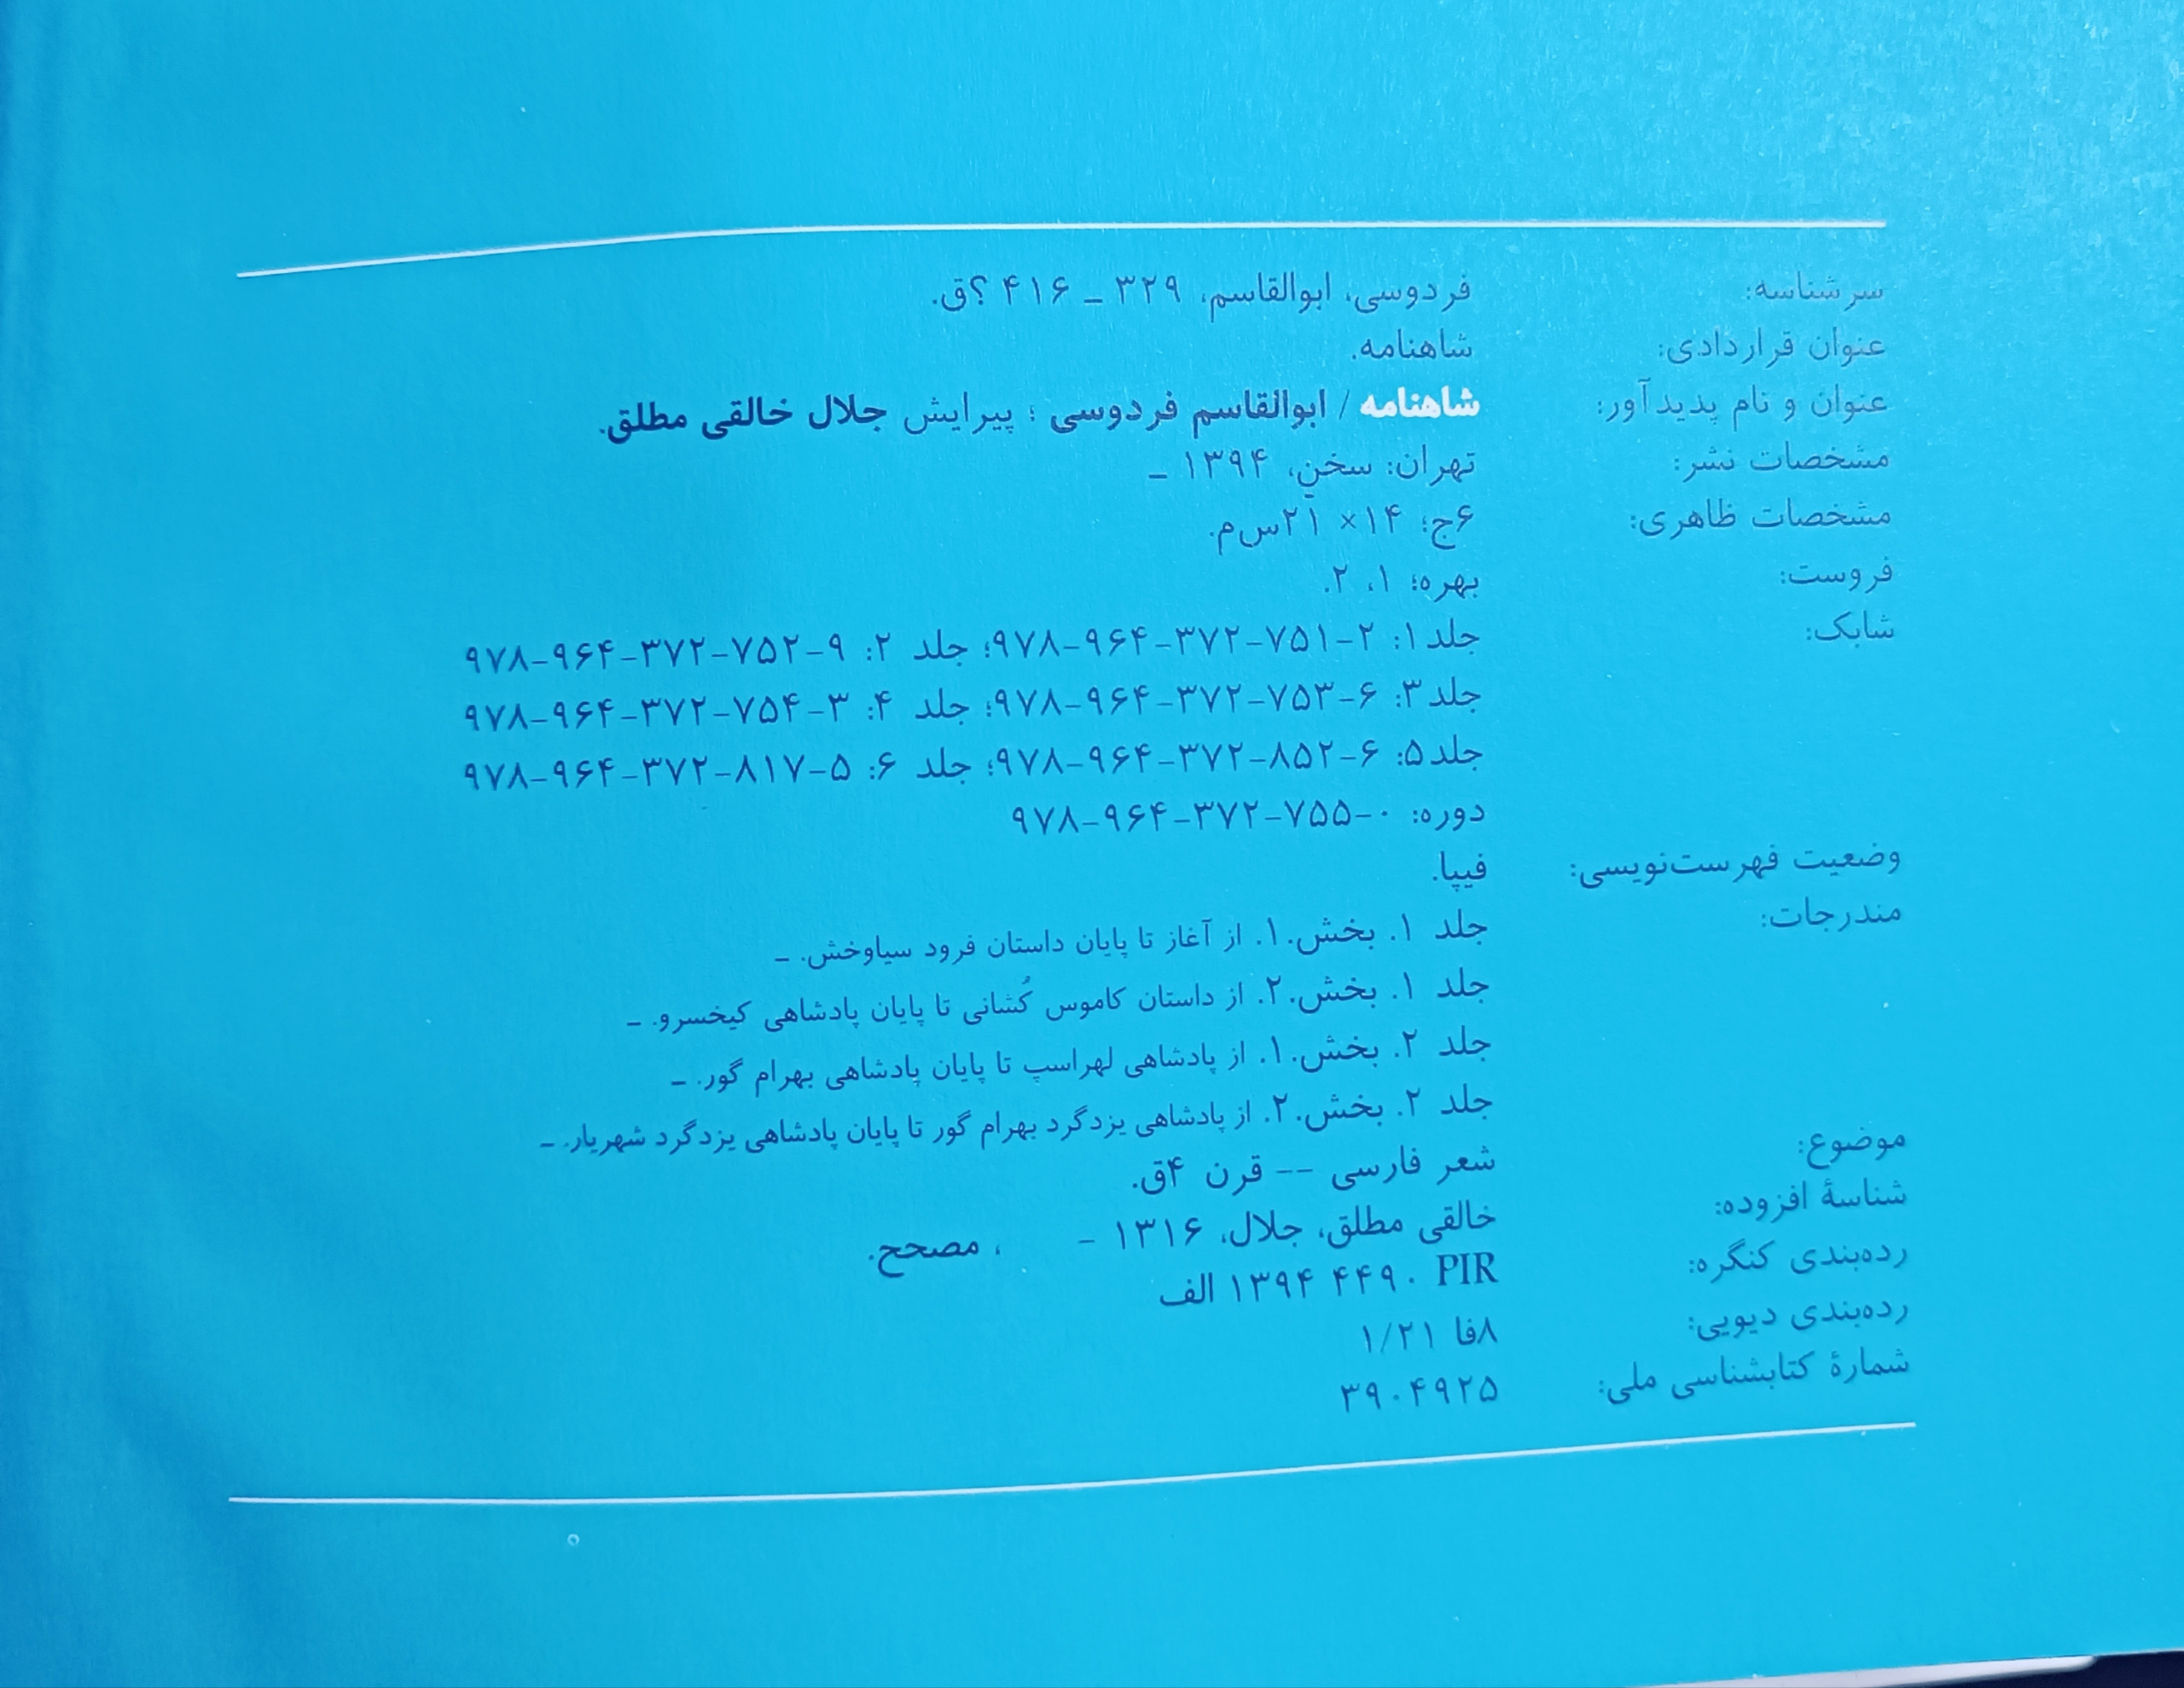 سرشناسه: فردوسی، ابوالقاسم، ۳۲۹ ـ ۴۱۶ ؟ق.
عنوان قراردادی: شاهنامه.
عنوان و نام پدیدآور: شاهنامه / ابوالقاسم فردوسی ؛ پیرایش جلال خالقی مطلق.
مشخصات نشر: تهران: سخن، ۱۳۹۴ ـ
مشخصات ظاهری: ۶ج؛ ۱۴× ۲۱س‌م.
فروست: بهره؛ ۱، ۲.
شابک: جلد۱: ۲-۷۵۱-۳۷۲-۹۶۴-۹۷۸؛ جلد ۲: ۹-۷۵۲-۳۷۲-۹۶۴-۹۷۸
جلد۳: ۶-۷۵۳-۳۷۲-۹۶۴-۹۷۸؛ جلد ۴: ۳-۷۵۴-۳۷۲-۹۶۴-۹۷۸
جلد۵: ۶-۸۵۲-۳۷۲-۹۶۴-۹۷۸؛ جلد ۶: ۵-۸۱۷-۳۷۲-۹۶۴-۹۷۸
دوره: ۰-۷۵۵-۳۷۲-۹۶۴-۹۷۸
وضعیت فهرست‌نویسی: فیپا.
مندرجات: جلد ۱. بخش.۱. از آغاز تا پایان داستان فرود سیاوخش. ـ
جلد ۱. بخش.۲. از داستان کاموس کُشانی تا پایان پادشاهی کیخسرو. ـ
جلد ۲. بخش.۱. از پادشاهی لهراسپ تا پایان پادشاهی بهرام گور. ـ
جلد ۲. بخش.۲. از پادشاهی یزدگرد بهرام گور تا پایان پادشاهی یزدگرد شهریار. ـ
موضوع: شعر فارسی -- قرن ۴ق.
شناسهٔ افزوده: خالقی مطلق، جلال، ۱۳۱۶ ـ ، مصحح.
رده‌بندی کنگره: PIR ۴۴۹۰ ۱۳۹۴ الف
رده‌بندی دیویی: ۸فا ۱/۲۱
شمارهٔ کتابشناسی ملی: ۳۹۰۴۹۲۵